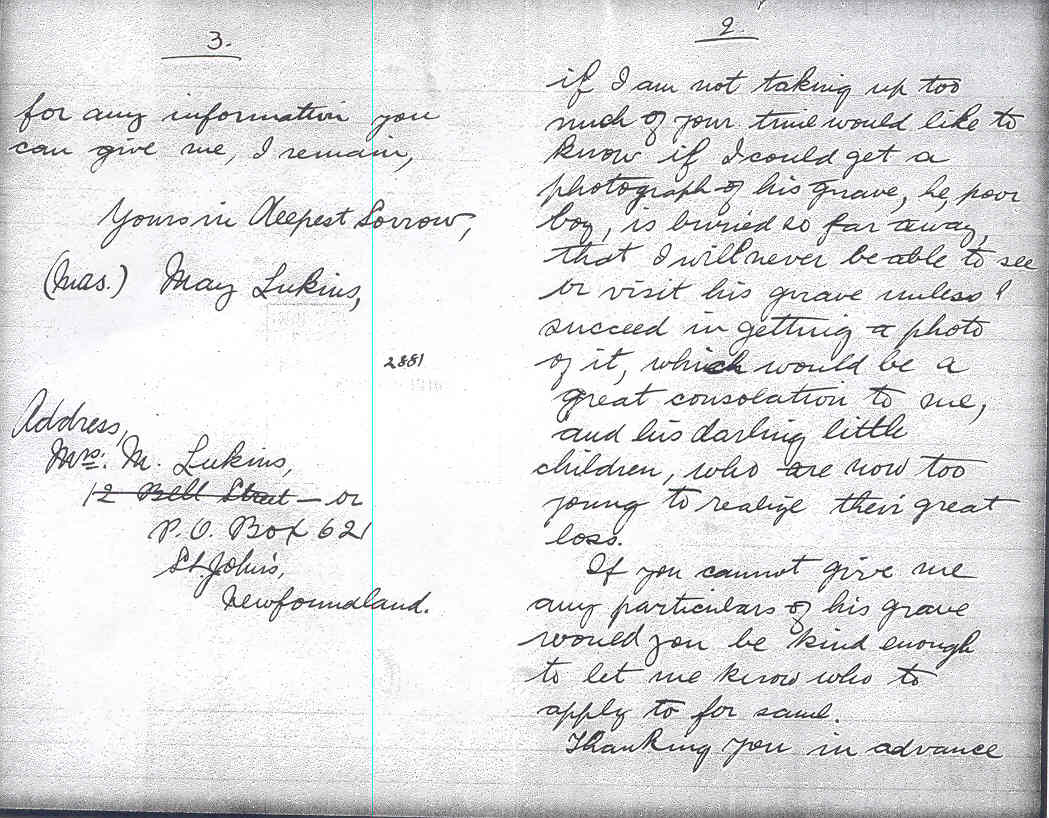 2.
if I am not taking up too
much of your time would like to
know if I could get a
photograph of his grave, he, poor
boy, is buried so far away,
that I will never be able to see
or visit his grave unless I
succeed in getting a photo
of it, which would be a
great consolation to me,
and his darling little
children, who are now too
young to realize their great
loss.
If you cannot give me
any particulars of his grave
would you be kind enough
to let me know who to
apply to for same.
Thanking you in advance
3.
for any information you
can give me, I remain,
Yours in deepest Sorrow,
(Mrs.) May Lukins,
2881
Address,
Mrs. M. Lukins,
12 Bell Street - or
P.O. Box 621
St. John's,
Newfoundland.